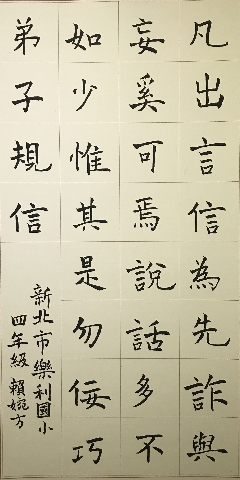 凡出言信為先詐與
妄奚可焉說話多不
如少惟其是勿佞巧
弟子規信
新北市樂利國小
四年級 賴婉方